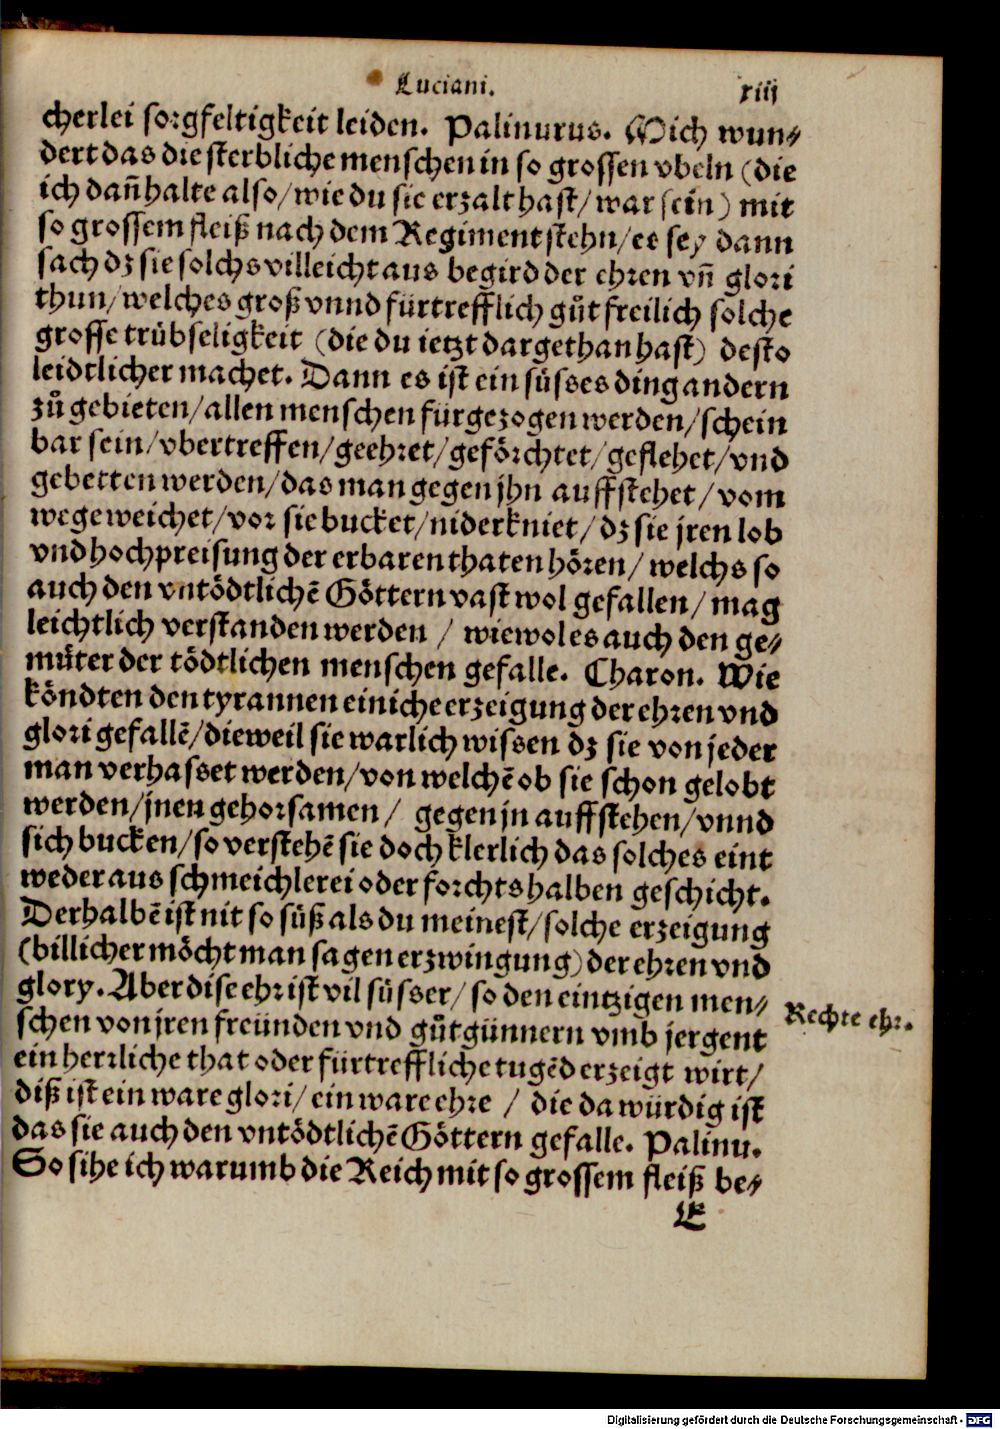 Luciani. xiij
cherlei sorgfeltigkeit leiden. Palinurus. Mich wun⸗
dert das die sterbliche menschen in so grossen vbeln (die
ich dañ halte also/ wie du sie erzalt hast/ war sein) mit
so grossem fleiß nach dem Regiment stehn/ es sey dann
sach dz sie solchs villeicht aus begird der ehren vñ glori
thun/ welches groß vnnd fürtrefflich gůt freilich solche
grosse trübseligkeit (die du ietzt dargethan hast) desto
leidtlicher machet. Dann es ist ein süsses ding andern
zů gebieten/ allen menschen fürgezogen werden/ schein
bar sein/ vbertreffen/ geehret/ geförchtet/ geflehet/ vnd
gebetten werden/ das man gegen jhn auffstehet/ vom
wege weichet/ vor sie bucket/ niderkniet/ dz sie jren lob
vnd hochpreisung der erbaren thaten hören/ welchs so
auch den vntödtlichẽ Göttern vast wol gefallen/ mag
leichtlich verstanden werden / wiewol es auch den ge⸗
müter der tödtlichen menschen gefalle. Charon. Wie
köndten den tyrannen einiche erzeigung der ehren vnd
glori gefallẽ/ dieweil sie warlich wissen dz sie von jeder
man verhasset werden/ von welchẽ ob sie schon gelobt
werden/ jnen gehorsamen / gegen jn auffstehen/ vnnd
sich bucken/ so verstehẽ sie doch klerlich das solches eint
weder aus schmeichlerei oder forchts halben geschicht.
Derhalbẽ ist nit so süß als du meinest/ solche erzeigung
(billicher möcht man sagen erzwingung) der ehren vnd
glory. Aber dise ehr ist vil süsser/ so den eintzigen men⸗
schen von jren freünden vnd gůtgünnern vmb jergent
ein herrliche that oder fürtreffliche tugẽd erzeigt wirt/
diß ist ein ware glori/ ein ware ehre / die da würdig ist
das sie auch den vntödtlichẽ Göttern gefalle. Palinu.
So sihe ich warumb die Reich mit so grossem fleiß be⸗
E
Rechte ehr.
Digitalisierung gefördert durch die Deutsche Forschungsgemeinschaft - DFG